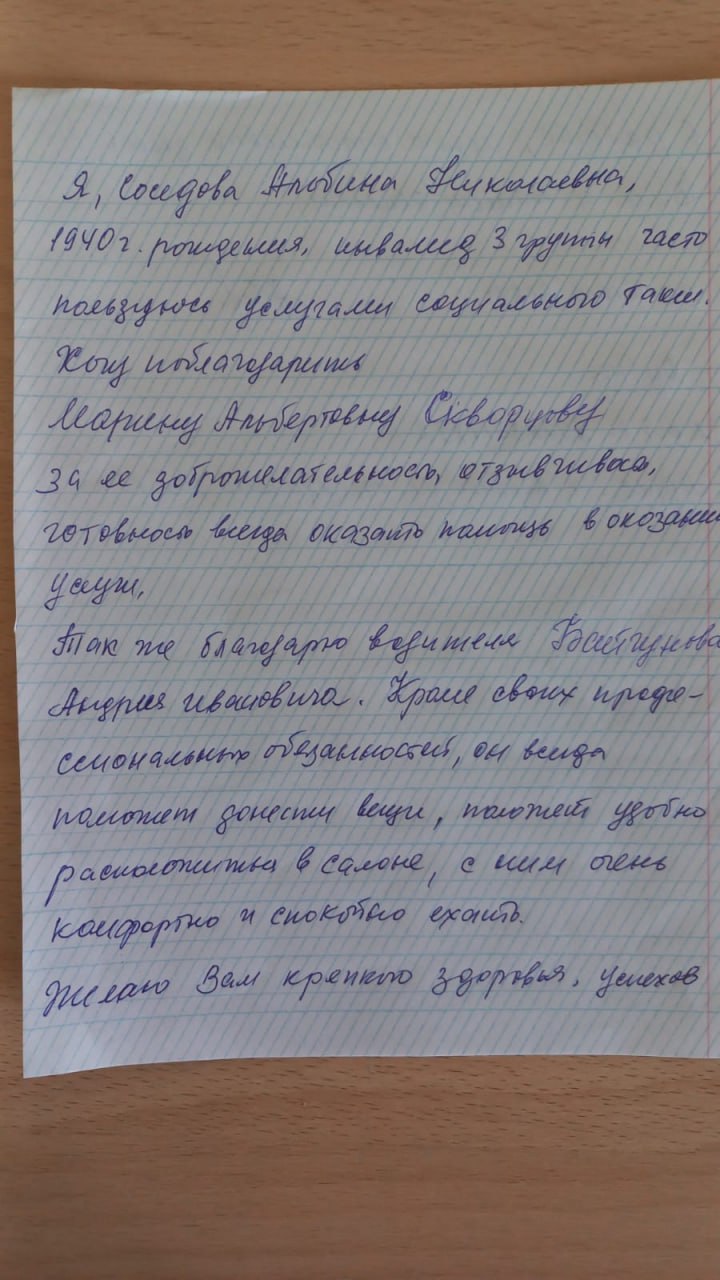 Я, Соседова Альбина Николаевна,
1940 г. рождения, инвалид 3 группы часто
пользуюсь услугами социального такси.
Хочу поблагодарить
Марину Альбертовну Скворцову
за ее доброжелательность, отзывчивость,
готовность всегда оказать помощь в оказании
услуги.
Так же благодарю водителя
Андрея Ивановича. Кроме своих профе-
ссиональных обязанностей, он всегда
поможет донести вещи, поможет удобно
расположиться в салоне, с ним очень
комфортно и спокойно ехать.
Желаю Вам крепкого здоровья, успехов